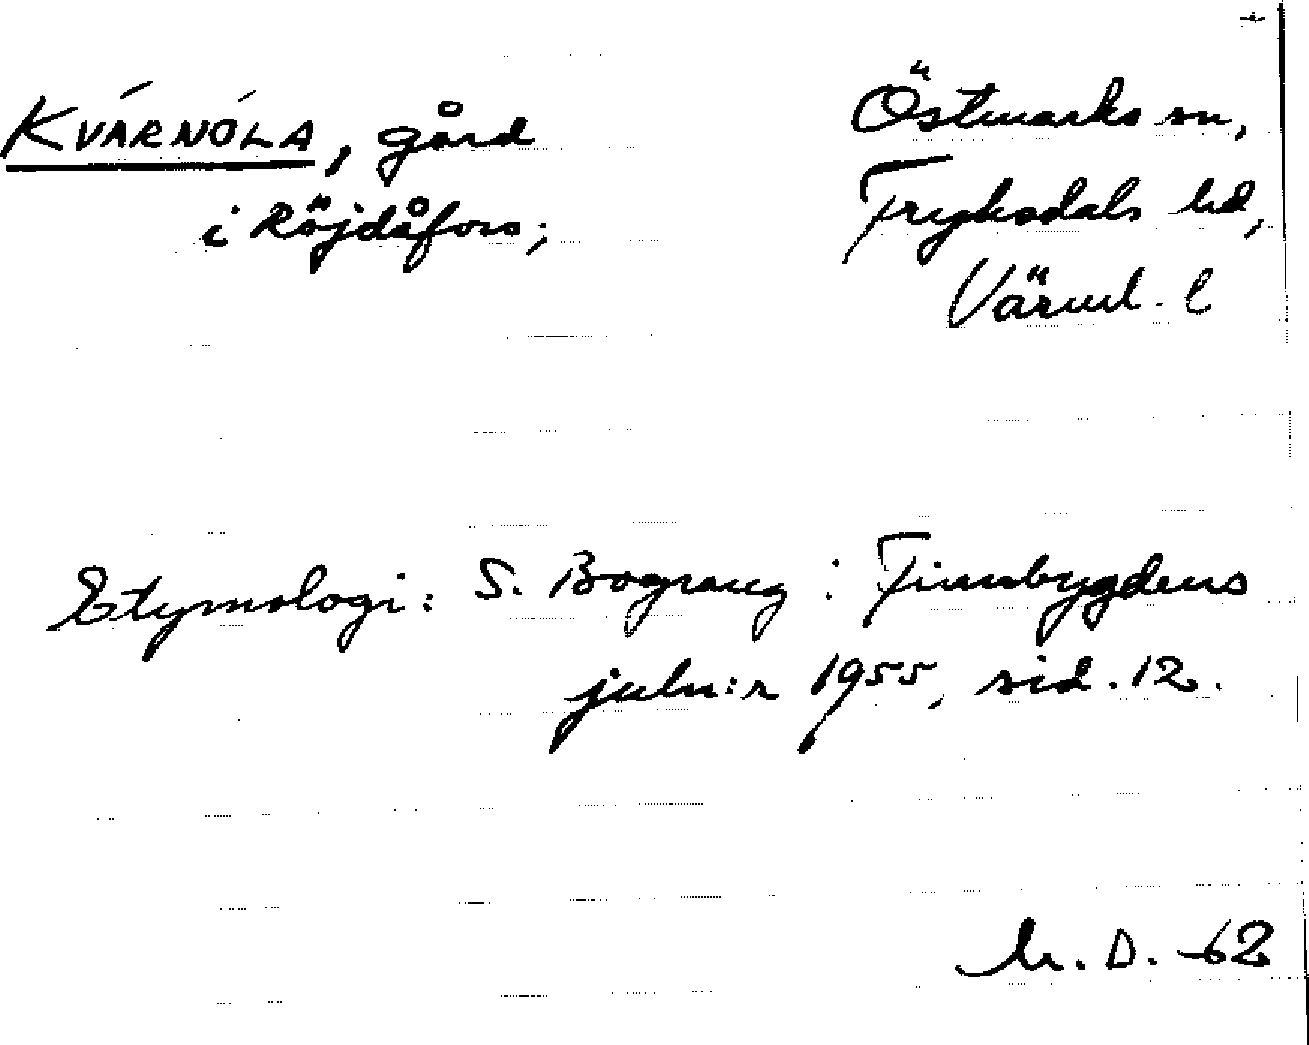 KVÁRNÓLA, gård
i Röjdåfors;
Östmarks sn,
Fryksdals hd,
Värml. l
Etymologi: S. Bograng: Finnbygdens
juln:r 1955, sid. 12.
D. -62